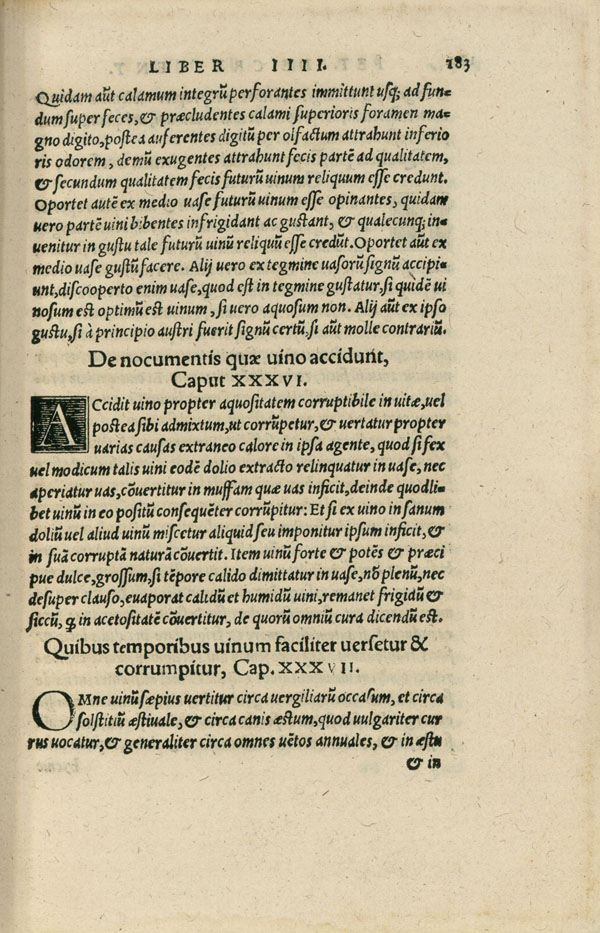 LIBER IIII. 183
Quidam aūt calamum integrū perforantes immittunt usq; ad fun-
dum super feces, & præcludentes calami superioris foramen ma-
gno digito, postea auferentes digitū per olfactum attrahunt inferio
ris odorem, demū exugentes attrahunt fecis partē ad qualitatem,
& secundum qualitatem fecis futurū uinum reliquum esse credunt.
Oportet autē ex medio uase futurū uinum esse opinantes, quidam
uero partē uini bibentes infrigidant ac gustant, & qualecunq; in-
uenitur in gustu tale futurū uinū reliquū esse credūt. Oportet aūt ex
medio uase gustū facere. Alij uero ex tegmine uasorū signū accipi-
unt, discooperto enim uase, quod est in tegmine gustatur, si quidē ui
nosum est optimū est uinum, si uero aquosum non. Alij aūt ex ipso
gustu, si à principio austri fuerit signū certū, si aūt molle contrariū.
De nocumentis quæ uino accidunt,
Caput XXXVI.
ACcidit uino propter aquositatem corruptibile in uitæ, uel
postea sibi admixtum, ut corrūpetur, & uertatur propter
uarias causas extraneo calore in ipsa agente, quod si fex
uel modicum talis uini eodē dolio extracto relinquatur in uase, nec
aperiatur uas, cōuertitur in muffam quæ uas inficit, deinde quodli-
bet uinū in eo positū consequēter corrūpitur: Et si ex uino in sanum
doliū uel aliud uinū miscetur aliquid seu imponitur ipsum inficit, &
in suā corruptā naturā cōuertit. Item uinū forte & potēs & præci
pue dulce, grossum, si tēpore calido dimittatur in uase, nō plenū, nec
desuper clauso, euaporat calidū et humidū uini, remanet frigidū &
siccū, ꝙ in acetositatē cōuertitur, de quorū omniū cura dicendū est.
Quibus temporibus uinum faciliter uersetur &
corrumpitur, Cap. XXXVII.
OMne uinū sæpius uertitur circa uergiliarū occasum, et circa
solstitiū æstiuale, & circa canis æstum, quod uulgariter cur
rus uocatur, & generaliter circa omnes uētos annuales, & in æstu
& in